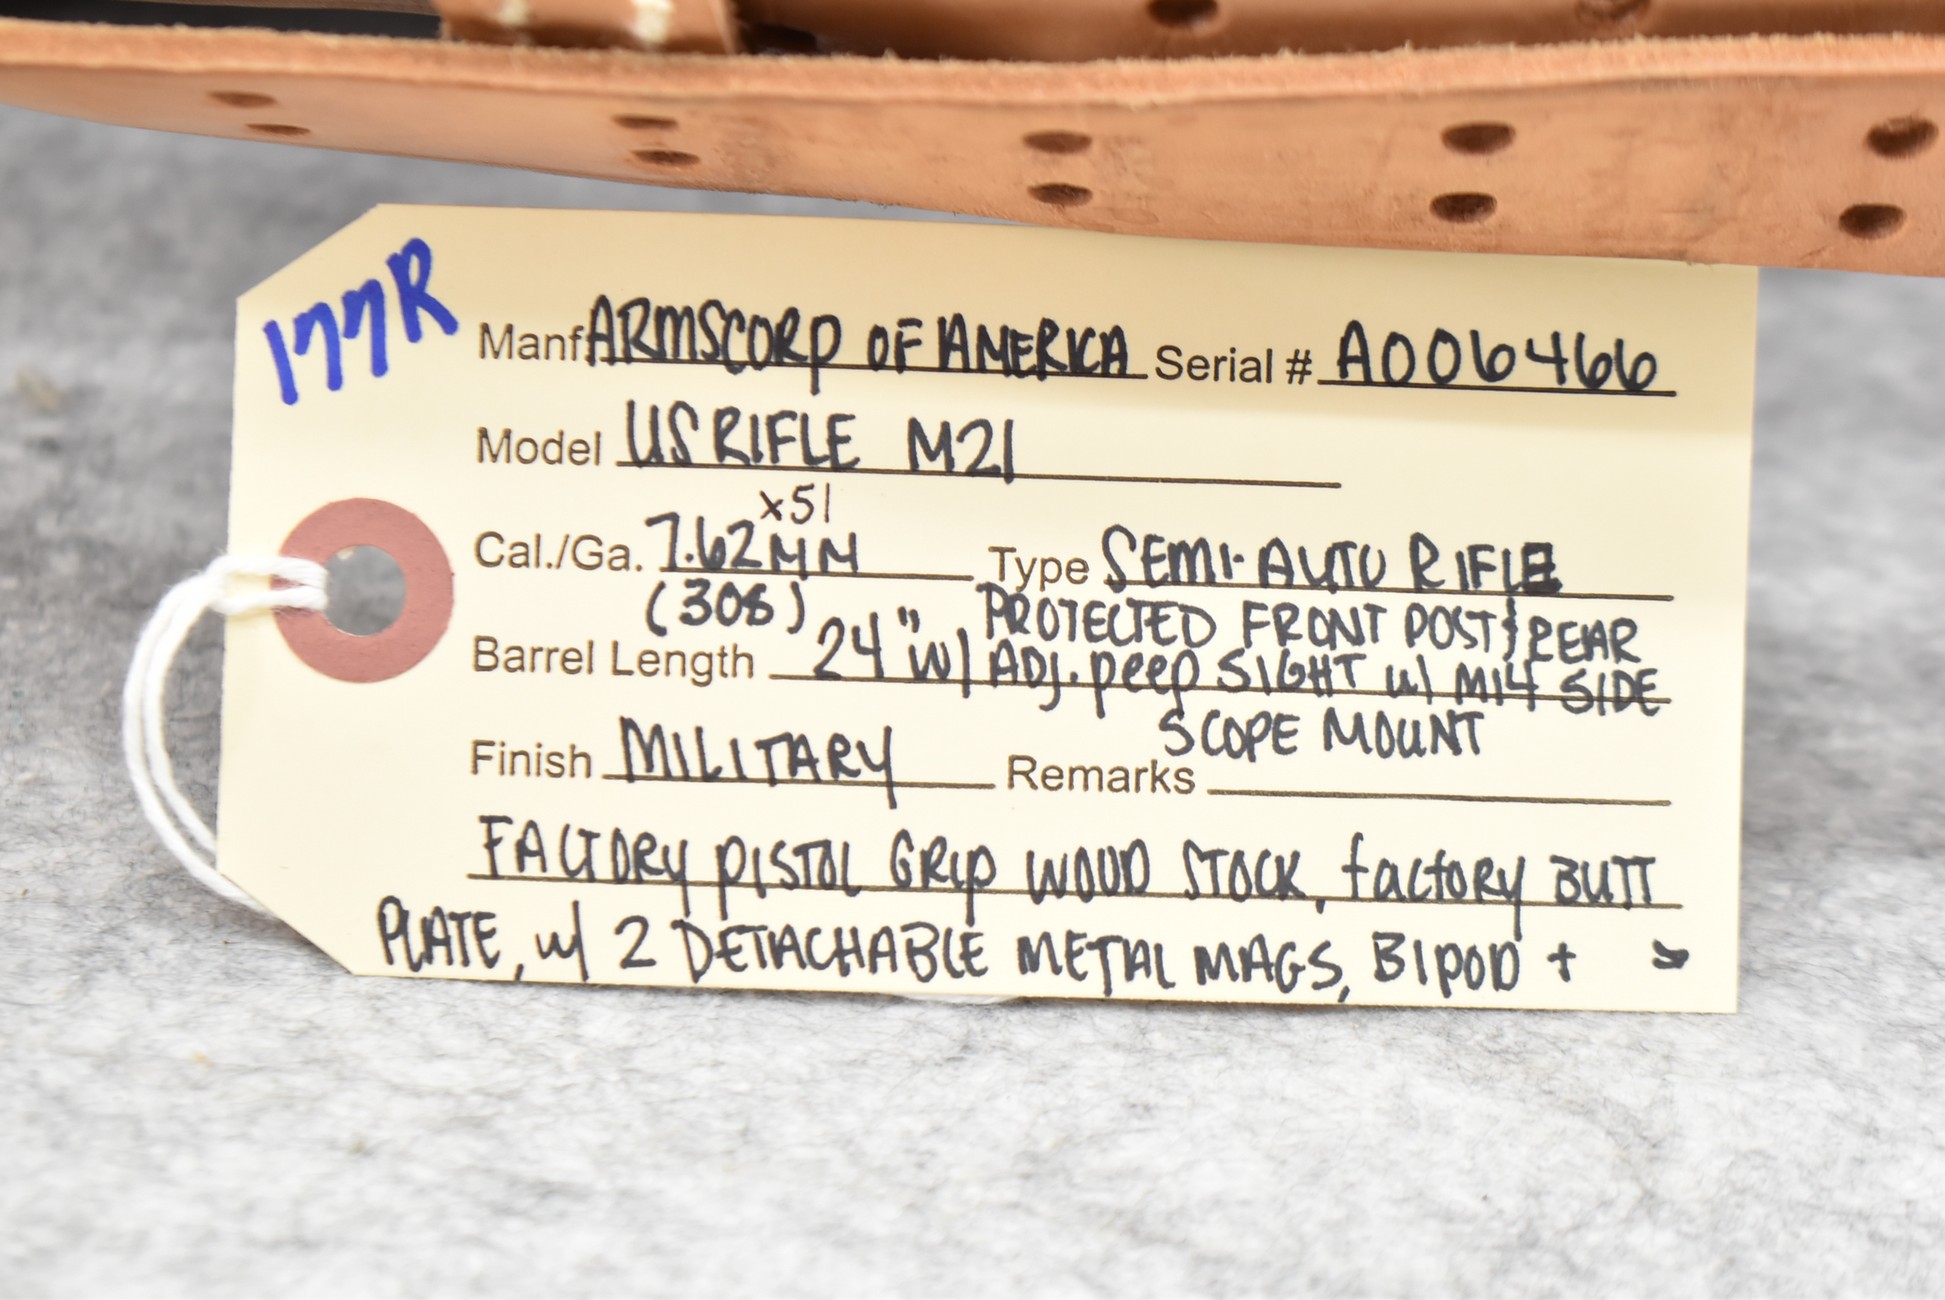 177R
Manf. ARMSCORP OF AMERICA Serial # A006466
Model US RIFLE M21
x51
Cal./Ga. 7.62MM Type SEMI-AUTO RIFLE
(308) PROTECTED FRONT POST & REAR
Barrel Length 24" w/ ADJ. peep SIGHT w/ M14 SIDE
SCOPE MOUNT
Finish MILITARY Remarks
FACTORY PISTOL GRIP WOOD STOCK, factory BUTT
PLATE, w/ 2 DETACHABLE METAL MAGS, BIPOD + >